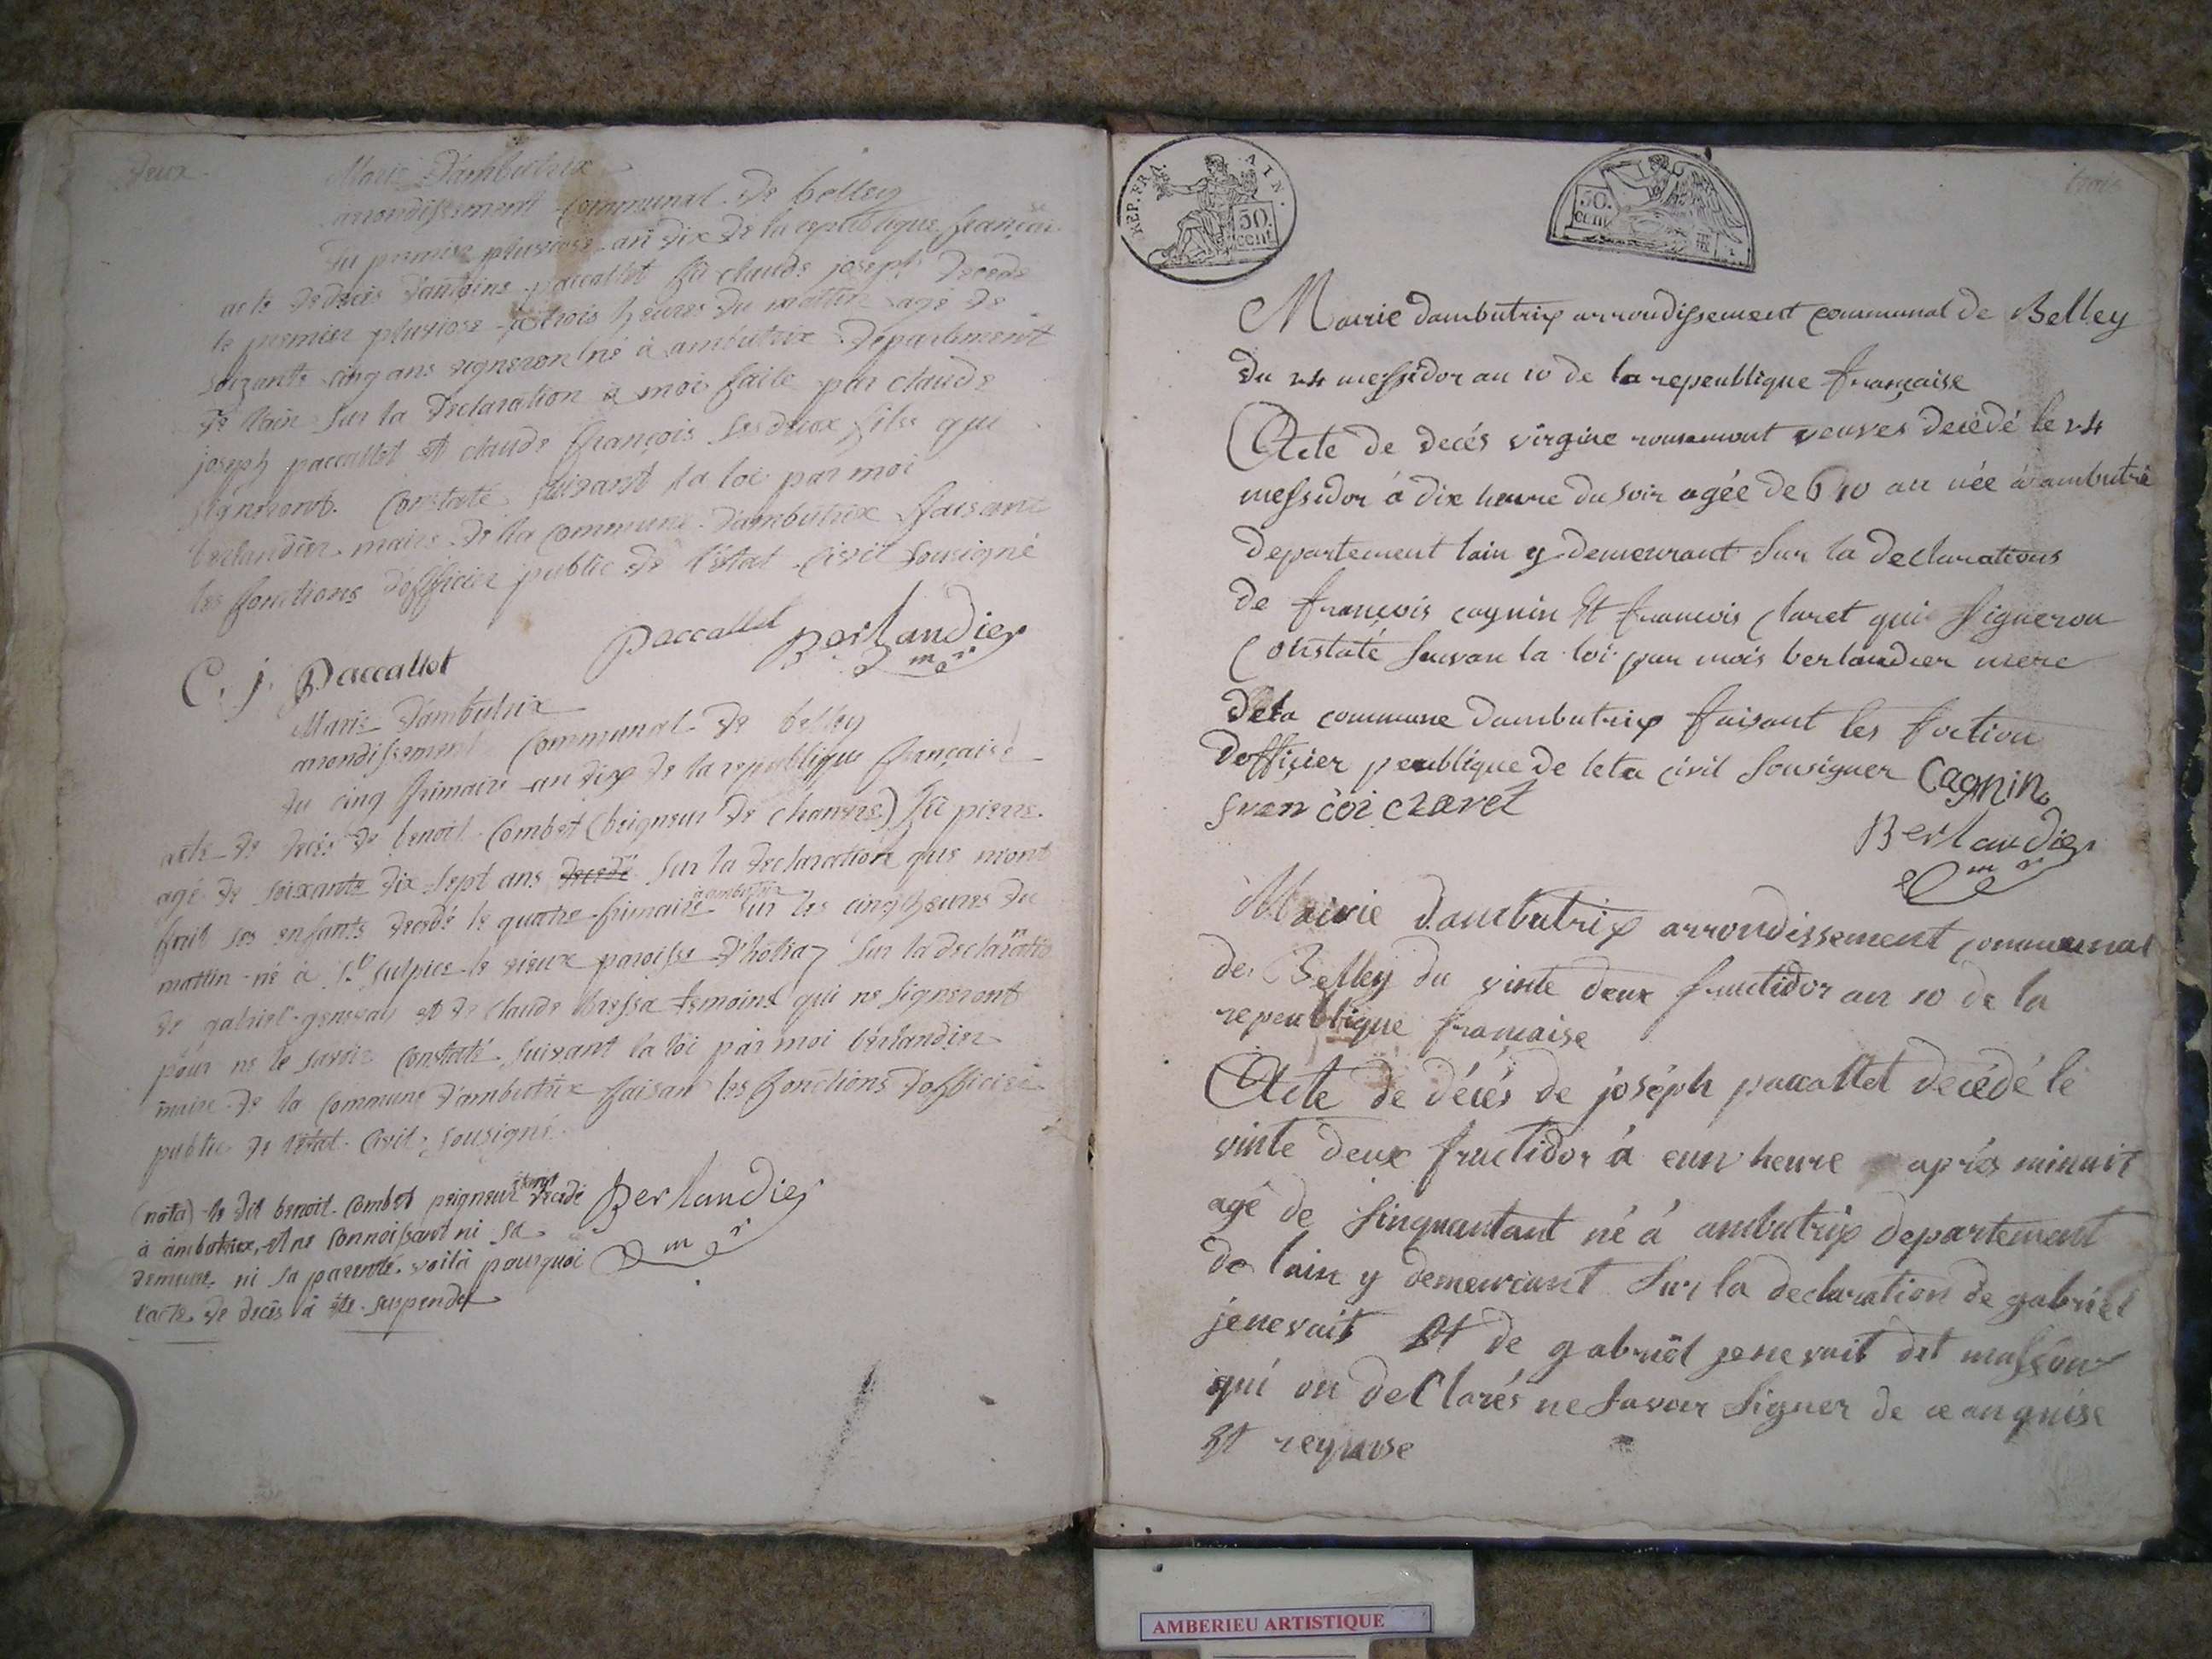 deux
Marie d'ambutrix
arrondissement communal de belley
du premier pluviose an dix de la republique françai
se
acte de decis d'antoine paccallet fû claude joseph decede
le premier pluviose à trois heures du mattin age de
soizante cinq ans vigneron né à ambutrix departement
de lain sur la declaration à moi faite par claude
joseph paccallet et claude françois ses deux fils qui
signeront. Constaté suivant la loi par moi
berlandier maire de la commune d'ambutrix ffaisant
les fonctions d'officier public de l'état civil sousigné
paccallet Berlandier
mer
C. j. Paccallet
Marie d'ambutrix
arrondissement Communal de belley
du cinq frimaire an dix de la republique française
acte de decés de benoit Combet (peigneur de chanvre) fû pierre
agé de soixante dix sept ans decede sur la declaration que m'ont
fait ses enfants decédé le quatre frimaire à ambutrix sur les cinq heures du
mattin né à St sulpice le vieux paroisse d'hotiaz sur la declaratio
n
de gabriel genevais et de claude bressa temoins qui ne signeront
pour ne le savoir Constaté suivant la loi par moi berlandier
maire de la commune d'ambutrix ffaisan les fonctions d'officier
public de l'état civil sousigné.
(nota) le dit benoit Combet peigneur étant decidé Berlandier
à ambutrix, et ne connoissant ni sa mer
demeure ni sa parenté voilà pourquoi
l'acte de decés à été suspendu
REP. FRA. AIN.
50.
cent
50.
cent
trois
Mairie dambutrix arrondissement communal de Belley
du 24 messidor an 10 de la repeublique française
Acte de decés virgine rousemont veuves decédé le 24
messidor à dix heure du soir agée de 6 10 an née à ambutri
departement lain y demeurant sur la declarations
de françois cagnin Et francois claret qui signeron
Constaté suivan la loi par mois berlandier mere
dela commune dambutrix faisant les foction
dofficier peublique de leta civil sousigner Cagnin
francoi claret
Berlandier
mer
Mairie dambutrix arrondissement communal
de Belley du vinte deux fructidor an 10 de la
repeublique francaise
Acte de décés de joséph paccallet decédé le
vinte deux fructidor à eun heure aprés minuit
agé de sinquantant né à ambutrix departement
de lain y demeurant sur la declaration de gabriel
jenevait Et de gabriel jenevait dit masson
qui on declarés ne savoir signer de ce anquise
Et requise
AMBERIEU ARTISTIQUE